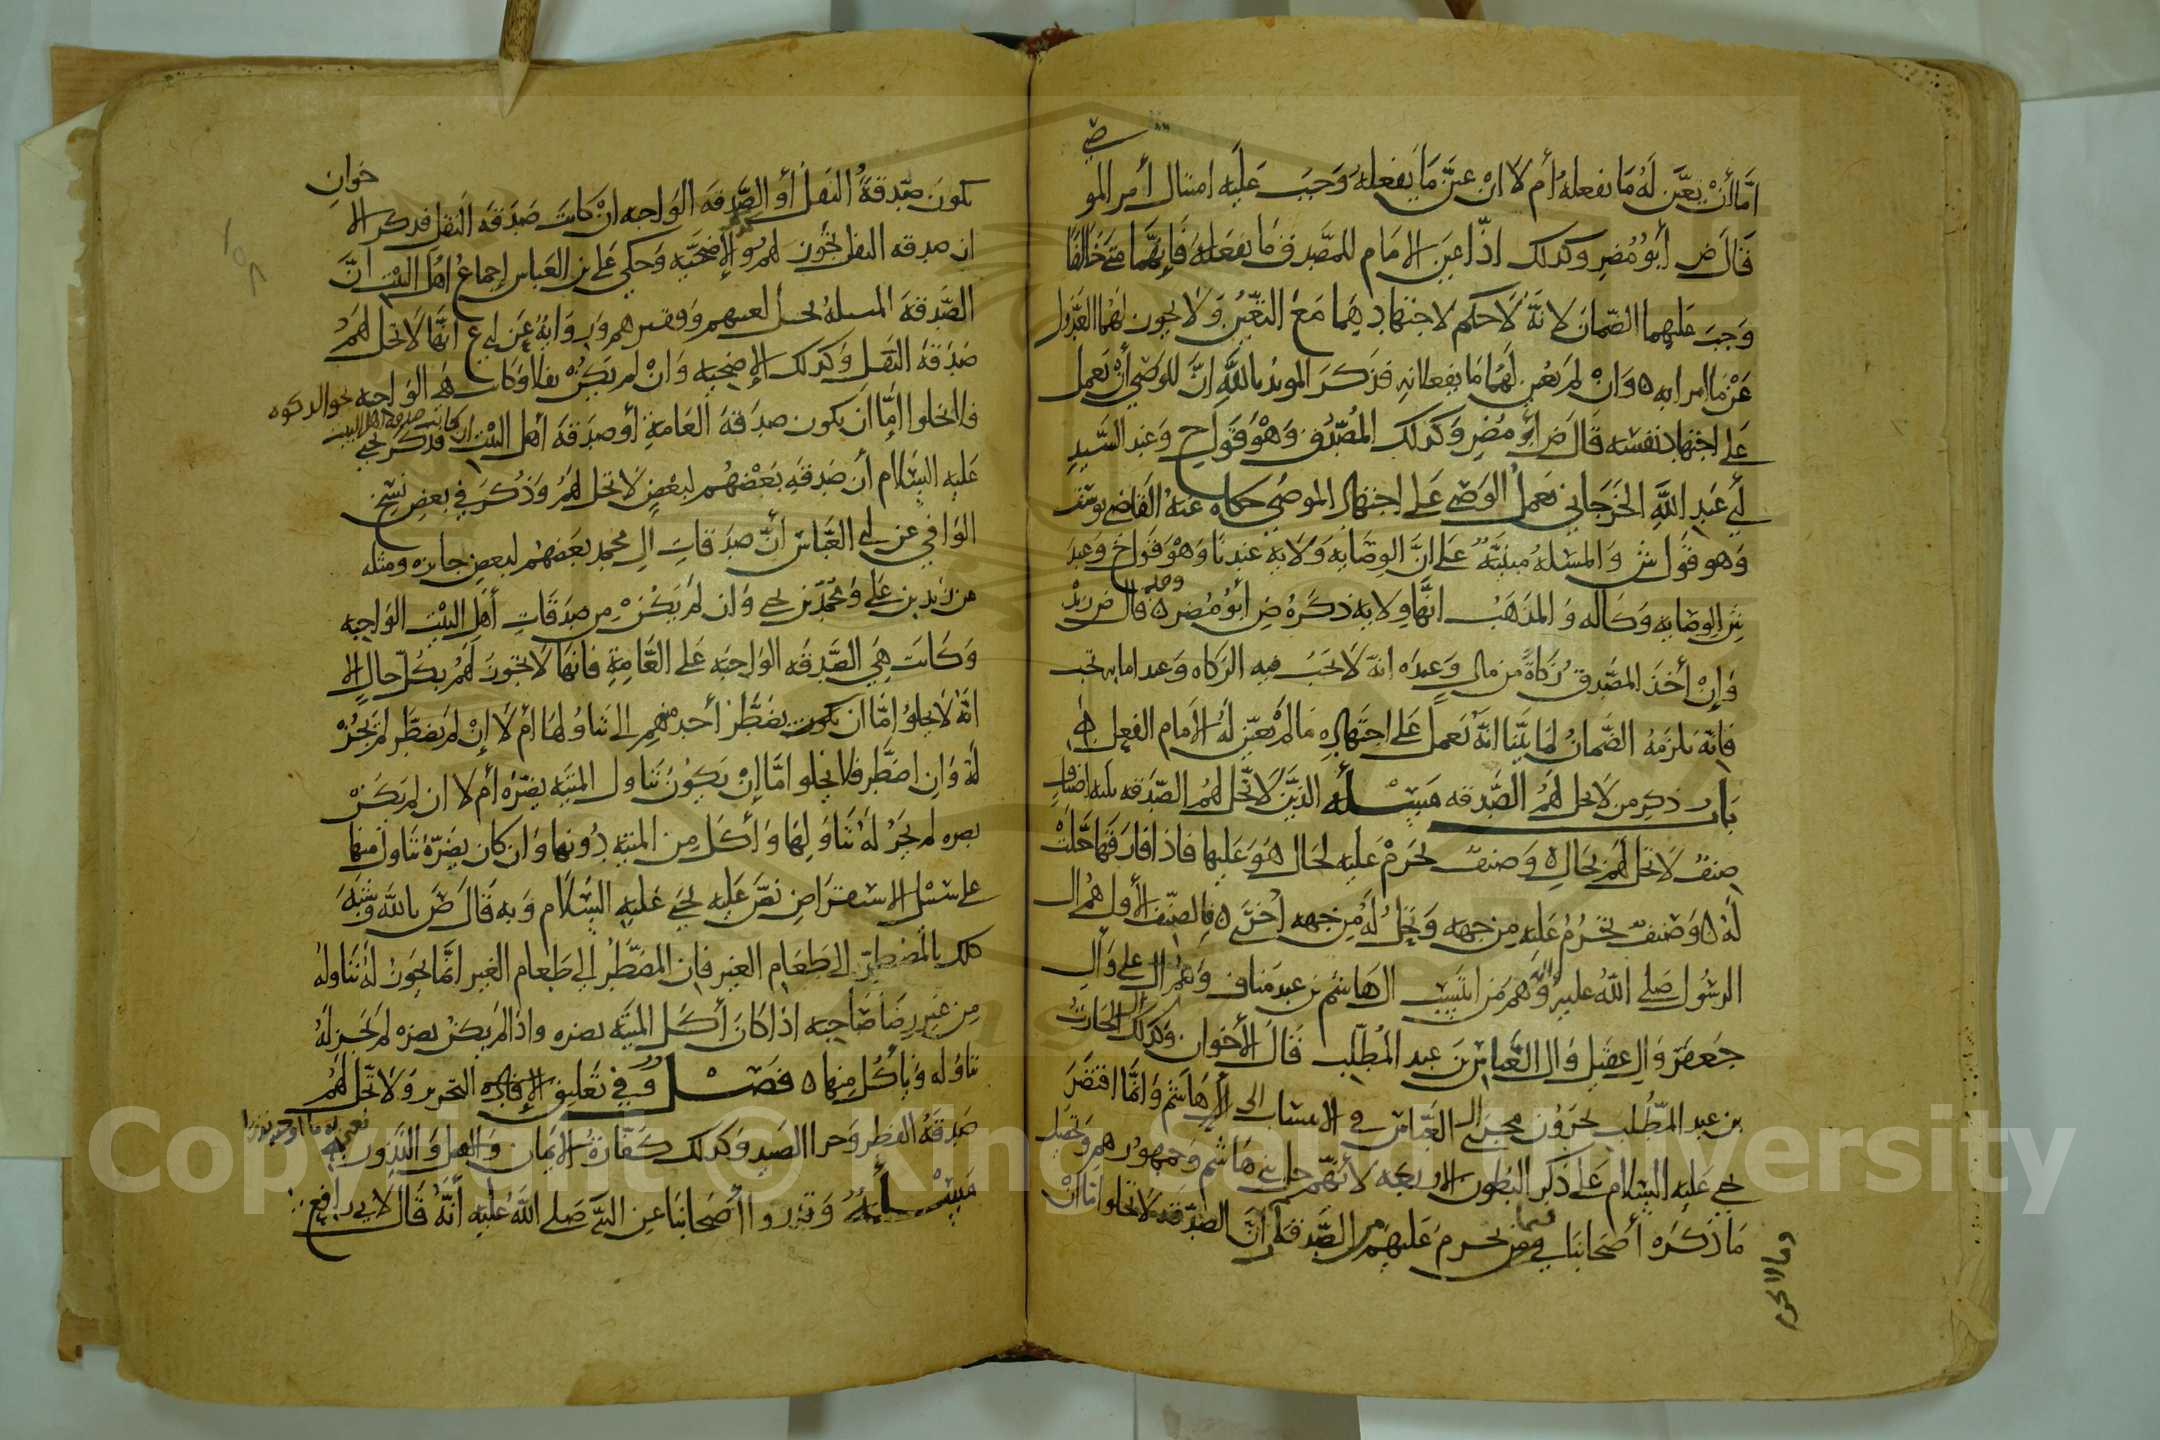 اما أن يعين له ما يفعله أم لا ان عين ما يفعله وجب عليه امتثال أمر الموصي
قال ض أبو مضر وكذلك اذا عين الامام للمصدق ما يفعله فإنهما متى خالفا
وجب عليهما الضمان لانه لا حكم لاجتهادهما مع التعيين ولا يجوز لهما العدول
عن ما امرا به وان لم يعين لهما ما يفعلانه فذكر المويد بالله ان للوصي أن يعمل
على اجتهاد نفسه قال ض أبو مضر وكذلك المصدق وهو قول ح وعند السيد
أبي عبد الله الجرجاني يعمل الوصي على اجتهاد الموصي حكاه عنه القاضي يوسف
وهو قول ش والمسئلة مبنية على ان الوصايه ولايه عندنا وهو قول ح وعند
ش الوصايه وكاله والمذهب انها ولايه ذكره ض أبو مضر وصله قال ض زيد
وإن أخذ المصدق زكاة من مال وعنده انه لا تجب فيه الزكاه وعند امامه تجب
فانه يلزمه الضمان لما بينا انه يعمل على اجتهاده ما لم يعين له الامام الفعل
باب ذكر من لا تحل لهم الصدقه مسئله الذين لا تحل لهم الصدقه ثلثه اصناف
صنف لا تحل لهم بحال وصنف تحرم عليه لحال هو عليها فاذا فارقها حلت
له وصنف تحرم عليه من جهه وتحل له من جهه أخرى فالصنف الأول هم ال
الرسول صلى الله عليه واله وهم من انتسب الى هاشم بن عبد مناف وهم ال علي وال
جعفر وال عقيل وال العباس بن عبد المطلب قال الأخوان وكذلك ال الحارث
بن عبد المطلب يجرون مجرى ال العباس في الانتساب الى هاشم وانما اقتصر
يحيى عليه السلام على ذكر البطون الاربعه لأنهم جل بني هاشم وجمهورهم وتحصيل
ما ذكره أصحابنا فيمن تحرم عليهم الصدقة أن الصدقه لا تخلوا اما ان
وما لا تحرم
تكون صدقة النفل أو الصدقه الواجبه ان كانت صدقه النفل فذكر الاخوان
ان صدقه النفل تجوز لهم والاضحيه وحكى علي بن العباس إجماع اهل البيت ان
الصدقه المسبله تحل لغنيهم وفقيرهم وروايه عن ابي ع انها لا تحل لهم
صدقه النفل وكذلك الإضحيه وان لم يكن نفلا وكانت هي الواجبه نحو الزكوه
فلا تخلوا إما ان يكون صدقه العامة أو صدقه أهل البيت ان كانت صدقه اهل البيت فذكر يحيى
عليه السلام أن صدقه بعضهم لبعض لا تحل لهم وذكر في بعض نسخ
الوافي عن ابي العباس أن صدقات ال محمد بعضهم لبعض جائزه ومثله
عن زيد بن علي ومحمد بن يحيى وان لم يكن من صدقات أهل البيت الواجبه
وكانت هي الصدقه الواجبه على العامة فانها لا تجوز لهم بكل حال الا
انه لا يخلو اما ان يكون يضطر أحد منهم الى تناولها أم لا إن لم يضطر لم تجز
له وان اضطر فلا يخلو اما إن يكون تناول الميته يضره أم لا ان لم يكن
يضره لم يجز له تناولها وأكل من الميته دونها وان كان يضره تناول منها
على سبيل الاستقراض نص عليه يحيى عليه السلام وبه قال ض بالله وشبه
ذلك بالمضطر الى طعام الغير فان المضطر الى طعام الغير انما يجوز له تناوله
من غير رضا صاحبه اذا كان أكل الميته يضره واذا لم يكن يضره لم يجز له
تناوله ويأكل منها فصل وفي تعليق الإفاده التحرير ولا تحل لهم
صدقة الفطر وجزا الصيد وكذلك كفارة الايمان والقتل والنذور
مسئلة وقد روا أصحابنا عن النبي صلى الله عليه أنه قال لابي رافع
١٥٨
Copyright © King Saud University